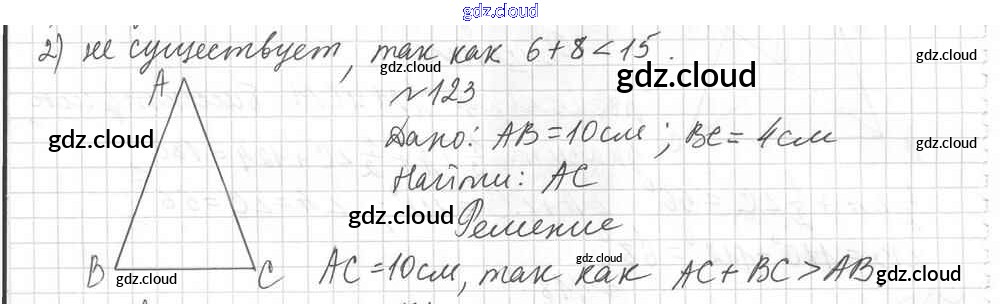 gdz.cloud
2) не существует, так как 6+8<15.
gdz.cloud
gdz.cloud
gdz.cloud
A
№123
gdz.cloud
Дано: AB=10см; BC=4см
gdz.cloud
Найти: AC
gdz.cloud
Решение
B C AC=10см, так как AC+BC>AB
gdz.cloud
gdz.cloud
gdz.cloud